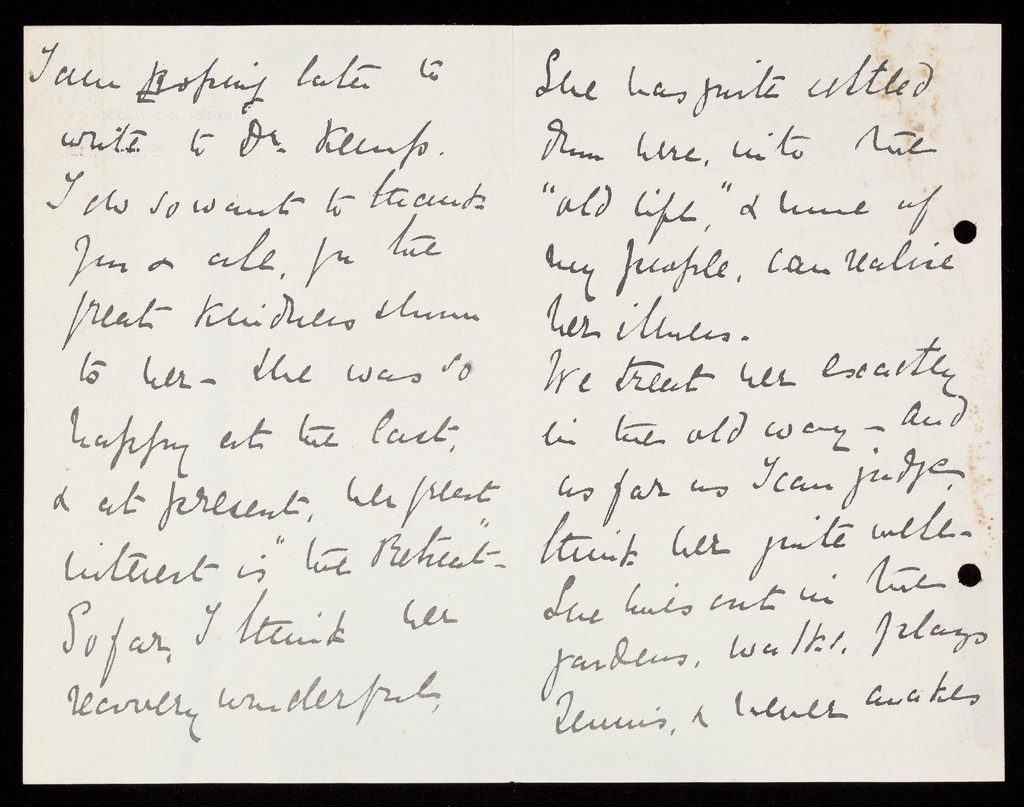 I am hoping later to
write to Dr. Kemp.
I do so want to thank
you & all, for the
great kindness shown
to her - She was so
happy at the last,
& at present, her great
interest is "the Retreat" -
So far, I think her
recovery wonderful,
She has quite settled
down here, into the
"old life," & none of
my people, can realise
her illness.
We treat her exactly
in the old way - and
as far as I can judge,
think her quite well -
She lives out in the
gardens, walks, plays
Tennis, & never awakes